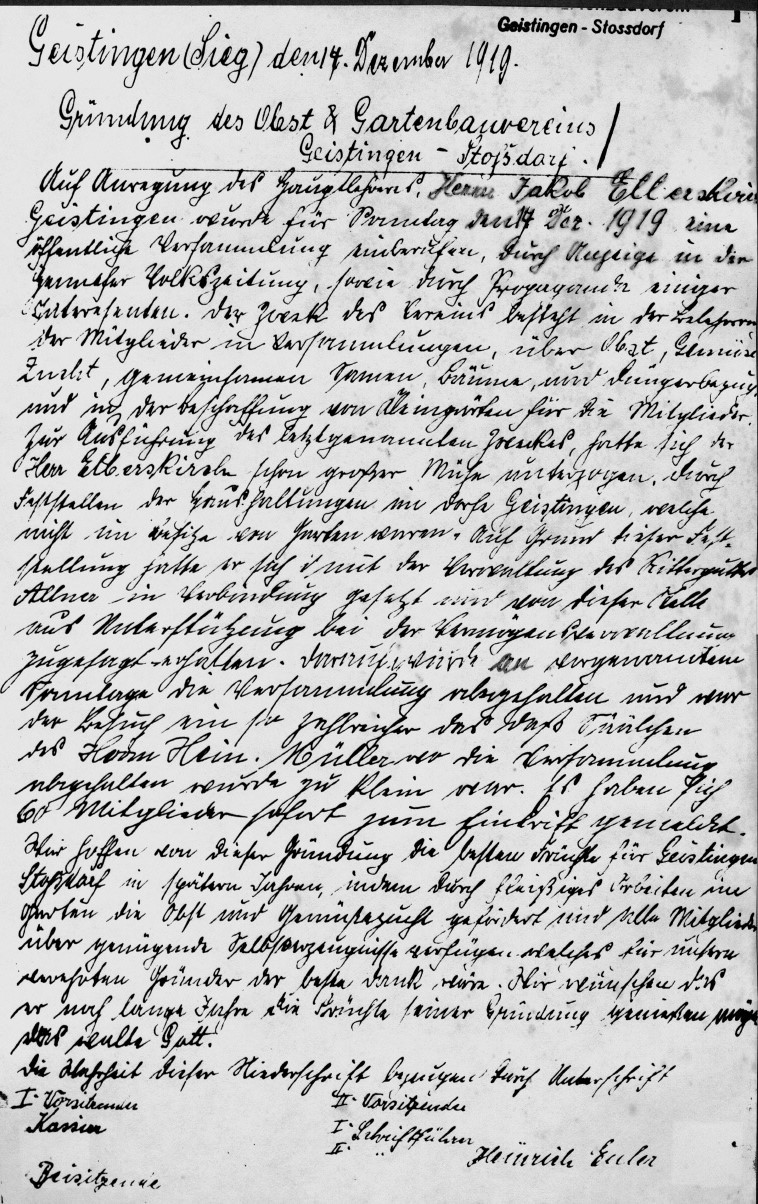 Geistingen - Stossdorf
Geistingen (Sieg) den 14. Dezember 1919.
Gründung des Obst & Gartenbauvereins
Geistingen - Stoßdorf.
Auf Anregung des Hauptlehrers, Herrn Jakob Elberskirch
Geistingen wurde für Sonntag den 14 Dez. 1919 eine
öffentliche Versammlung einberufen, durch Anzeige in der
Hennefer Volkszeitung, sowie durch Propaganda einiger
Interesenten. Der Zweck des Vereins besteht in der
der Mitglieder in Versammlungen, über Obst, Gemüse
Zucht, gemeinsamen Samen, Bäume, und Düngerbezug,
und in der Beschaffung von Kleingärten für die Mitglieder.
Zur Ausführung des letztgenannten Zweckes, hatte sich der
Herr Elberskirch schon großer Mühe unterzogen, durch
Feststellen der Haushaltungen im Dorfe Geistingen, welche
nicht im Besitze von Garten waren. Auf Grund dieser Fest-
stellung hatte er sich mit der Verwaltung des Rittergutes
Allner in Verbindung gesetzt und von dieser Stelle
aus Unterstützung bei der Vermögensverwaltung
zugesagt erhalten. Darauf wurde an vorgenanntem
Sonntage die Versammlung abgehalten und war
der Besuch ein so zahlreicher das daß Sälchen
des Herrn Hein. Müller wo die Versammlung
abgehalten wurde zu klein war. Es haben sich
60 Mitglieder sofort zum Eintritt gemeldet.
Wir hoffen von dieser Gründung die besten Früchte für Geistingen
Stoßdorf in spätern Jahren, indem durch fleißiges Arbeiten im
Garten die Obst und Gemüsezucht gefördert und alle Mitglieder
über genügende Selbsterzeugnisse verfügen welches für unsern
verehrten Gründer der beste Dank wäre. Wir wünschen das
er noch lange Jahre die Früchte seiner Gründung genießen möge
das walte Gott.
Die Wahrheit dieser Niederschrift bezeugen durch Unterschrift
I. Vorsitzender II. Vorsitzender
Kassierer I. Schriftführer
II. " Heinrich Euler
Beisitzende